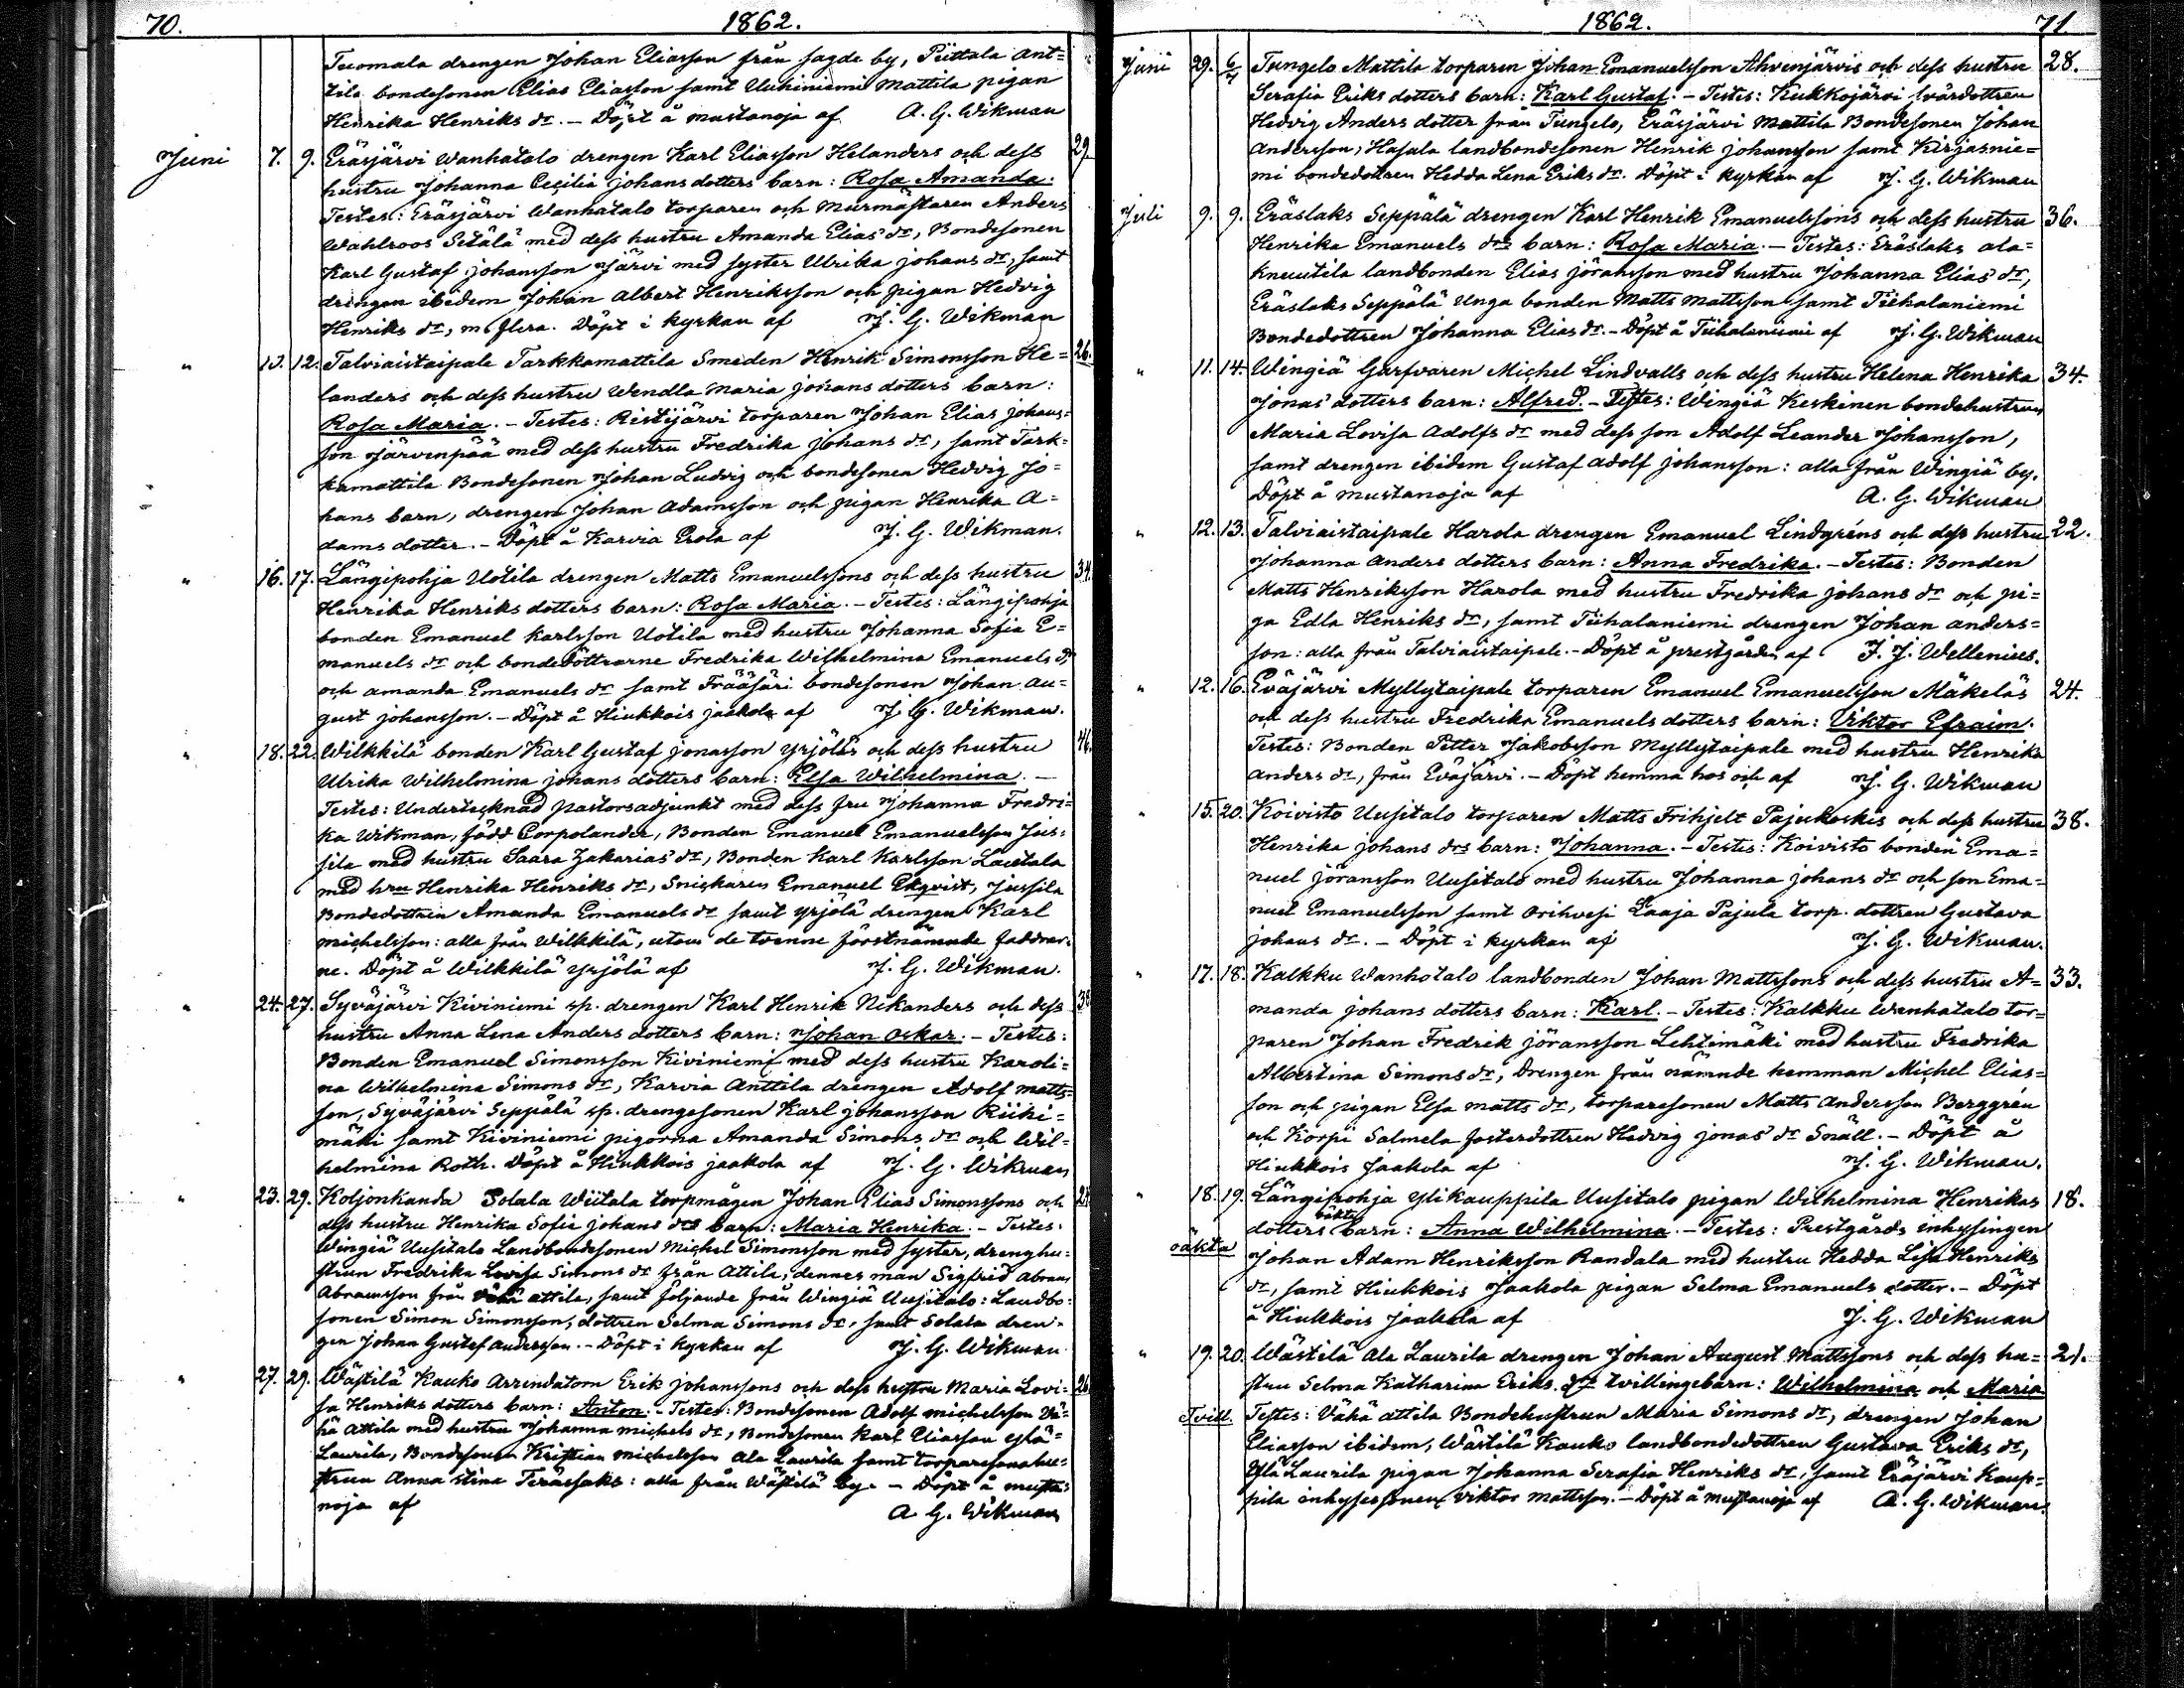 70. 1862.
Tuomala drengen Johan Eliasson från sagde by, Püttala Ant=
tila bondesonen Elias Eliasson samt Uuhiniemi Mattila pigan
Henrika Henriks dr. – Döpt å mustanoja af A. G. Wikman
Juni 7. 9. Eräsjärvi Wanhatalo drengen Karl Eliasson Helanders och dess 29.
hustru Johanna Cecilia johans dotters barn: Rosa Amanda.
Testes: Eräsjärvi Wanhatalo torparen och Murmästaren Anders
Wahlroos Setälä med dess hustru Amanda Elias dr, Bondesonen
Karl Gustaf johansson Järvi med syster Ulrika johans dr, samt
drengen ibidem Johan Albert Henriksson och pigan Hedvig
Henriks dr, m. flera. Döpt i kyrkan af J. G. Wikman
" 10. 12. Talviaistaipale Tarkkamattila Smeden Henrik Simonsson He= 26.
landers och dess hustru Wendla Maria johans dotters barn:
Rosa Maria. – Testes: Ristijärvi torparen Johan Elias johans=
son Järvenpää med dess hustru Fredrika johans dr, samt Tark=
kamattila Bondesonen Johan Ludvig och bondesonen Hedvig Jo=
hans barn, drengen Johan Adamsson och pigan Henrika A=
dams dotter. – Döpt å Karvia Erola af J. G. Wikman.
" 16. 17. Längipohja Uotila drengen Matts Emanuelssons och dess hustru 34.
Henrika Henriks dotters barn: Rosa Maria. – Testes: Längipohja
bonden Emanuel Karlsson Uotila med hustru Johanna Sofia E=
manuels dr och bondedöttrarne Fredrika Wilhelmina Emanuels dr
och amanda Emanuels dr samt Fräåsäri bondesonen Johan Au=
gust johansson. – Döpt å Hiukkois jaakola af J. G. Wikman.
" 18. 22. Wilkkilä bonden Karl Gustaf jonasson yrjöläs och dess hustru 46.
Ulrika Wilhelmina johans dotters barn: Elsa Wilhelmina. –
Testes: Undertecknad pastorsadjunkt med dess fru Johanna Fredri=
ka Wikman, född Corpolander, Bonden Emanuel Emanuelsson Jus=
sila med hustru Saara Zakarias dr, Bonden Karl Karlsson Lautala
med hru Henrika Henriks dr, Snickaren Emanuel Ekqvist, Jussila
Bondedottren Amanda Emanuels dr samt yrjölä drengen Karl
michelsson: alla från Wilkkilä, utom de tvenne förstnämnde faddrar=
ne. Döpt å Wilkkilä yrjölä af J. G. Wikman.
" 24. 27. Syväjärvi Kiviniemi sp. drengen Karl Henrik Nikanders och dess
hustru Anna Lena Anders dotters barn: Johan Oskar. – Testes:
Bonden Emanuel Simonsson Kiviniemi med dess hustru Karoli=
na Wilhelmina Simons dr, Karvia Anttila drengen Adolf matts=
son, Syväjärvi Seppälä sp. drengesonen Karl johansson Riihi=
mäki samt Kiviniemi pigorna Amanda Simons dr och Wil=
helmina Roth. Döpt å Hiukkois jaakola af J. G. Wikman
" 23. 29. Koljonkanda Solala Wiitala torpmågen Johan Elias Simonssons och
dess hustru Henrika Sofia johans drs barn: Maria Henrika. – Testes:
Wingiä Uusitalo Landbondesonen Michel Simonsson med syster, drenghu=
strun Fredrika Lovisa Simons dr från Attila, dennes man Sigfrid Abrams
Abramsson från Vähä attila, samt följande från Wingiä Uusitalo: Landbo=
sonen Simon Simonsson, dottren Selma Simons dr, samt Solala dren=
gen Johan Gustaf andersson. – Döpt i kyrkan af J. G. Wikman
" 27. 29. Wästilä Kauko Arrendatorn Erik johanssons och dess hustru Maria Lovi= 26.
sa Henriks dotters barn: Anton. – Testes: Bondesonen Adolf michelsson Vä=
hä Attila med hustru Johanna michels dr, Bondesonen Karl Eliasson Ylä=
Laurila, Bondesonen Kristian michelsson Ala Laurila samt torparesonshu=
strun Anna Stina Teräslaks: alla från Wästilä by. – Döpt å musta=
noja af A. G. Wikman
1862. 71
Juni 29. 6/7 Tungelo Mattila torparen Johan Emanuelsson Ahvenjärvis och dess hustru 28.
Serafia Eriks dotters barn: Karl Gustaf. – Testes: Kukkojärvi svärdottren
Hedvig Anders dotter från Tungelo, Eräsjärvi Mattila Bondesonen Johan
Andersson, Hasala landbondesonen Henrik johansson samt Kirjasnie=
mi bondedottren Hedda Lena Eriks dr. Döpt i kyrkan af J. G. Wikman
Juli 9. 9. Eräslaks Seppälä drengen Karl Henrik Emanuelssons och dess hustru 36.
Henrika Emanuels drs barn: Rosa Maria. – Testes: Eräslaks ala=
knuutila landbonden Elias jöransson med hustru Johanna Elias dr,
Eräslaks Seppälä Unga bonden Matts mattsson samt Tiihalaniemi
Bondedottren Johanna Elias dr. – Döpt å Tiihalaniemi af J. G. Wikman
" 11. 14. Wingiä Garfvaren Michel Lindvalls och dess hustru Helena Henrika 34.
Jonas dotters barn: Alfred. – Testes: Wingiä Keskinen bondehustrun
Maria Lovisa Adolfs dr med dess son Adolf Leander Johansson,
samt drengen ibidem Gustaf Adolf johansson: alla från Wingiä by.
Döpt å mustanoja af A. G. Wikman
" 12. 13. Talviaistaipale Harola drengen Emanuel Lindgréns och dess hustru 22.
Johanna Anders dotters barn: Anna Fredrika. – Testes: Bonden
Matts Henriksson Harola med hustru Fredrika johans dr och pi=
ga Edla Henriks dr, samt Tiihalaniemi drengen Johan anders=
son: alla från Talviaistaipale. – Döpt å prestgården af F. J. Wellenius.
" 12. 16. Eväjärvi Myllytaipale torparen Emanuel Emanuelsson Mäkeläs 24.
och dess hustru Fredrika Emanuels dotters barn: Viktor Efraim.
Testes: Bonden Petter Jakobsson Myllytaipale med hustru Henrika
Anders dr, från Eväjärvi. – Döpt hemma hos och af J. G. Wikman
" 15. 20. Koivisto Uusitalo torparen Matts Frihjelt Pajukoskis och dess hustru 38.
Henrika johans drs barn: Johanna. – Testes: Koivisto bonden Ema=
nuel jöransson Uusitalo med hustru Johanna johans dr och son Ema=
nuel Emanuelsson samt Orihvesi Laaja Pajula torp. dottren Gustava
johans dr. – Döpt i kyrkan af J. G. Wikman.
" 17. 18. Kalkku Wanhatalo landbonden Johan Mattssons och dess hustru A= 33.
manda johans dotters barn: Karl. – Testes: Kalkku Wanhatalo tor=
paren Johan Fredrik jöransson Lehtimäki med hustru Fredrika
Albertina Simons dr, Drengen från nämnde hemman Michel Elias=
son och pigan Elsa matts dr, torparesonen Matts Andersson Berggrén
och Korpi Salmela fosterdottren Hedvig jonas dr Snäll. – Döpt å
Hiukkois Jaakola af J. G. Wikman.
" 18. 19. Längipohja Ylikauppila Uusitalo pigan Wilhelmina Henrikas 18.
oäkta dotters barn: Anna Wilhelmina. – Testes: Prestgårds inhysingen
Johan Adam Henriksson Randala med hustru Hedda Lisa Henriks
dr, samt Hiukkois Jaakola pigan Selma Emanuels dotter. – Döpt
å Hiukkois Jaakola af J. G. Wikman
" 19. 20. Wästilä Ala Laurila drengen Johan August Mattssons och dess hu= 21.
stru Selma Katharina Eriks drs tvillingebarn: Wilhelmina och Maria
Tvill. Testes: Vähä attila Bondehustrun Maria Simons dr, drengen Johan
Eliasson ibidem, Wästilä Kauko landbondedottren Gustava Eriks dr,
Ylä Laurila pigan Johanna Serafia Henriks dr, samt Eräjärvi Kaup=
pila inhysessonen Viktor Mattsson. – Döpt å Mustanoja af A. G. Wikman.